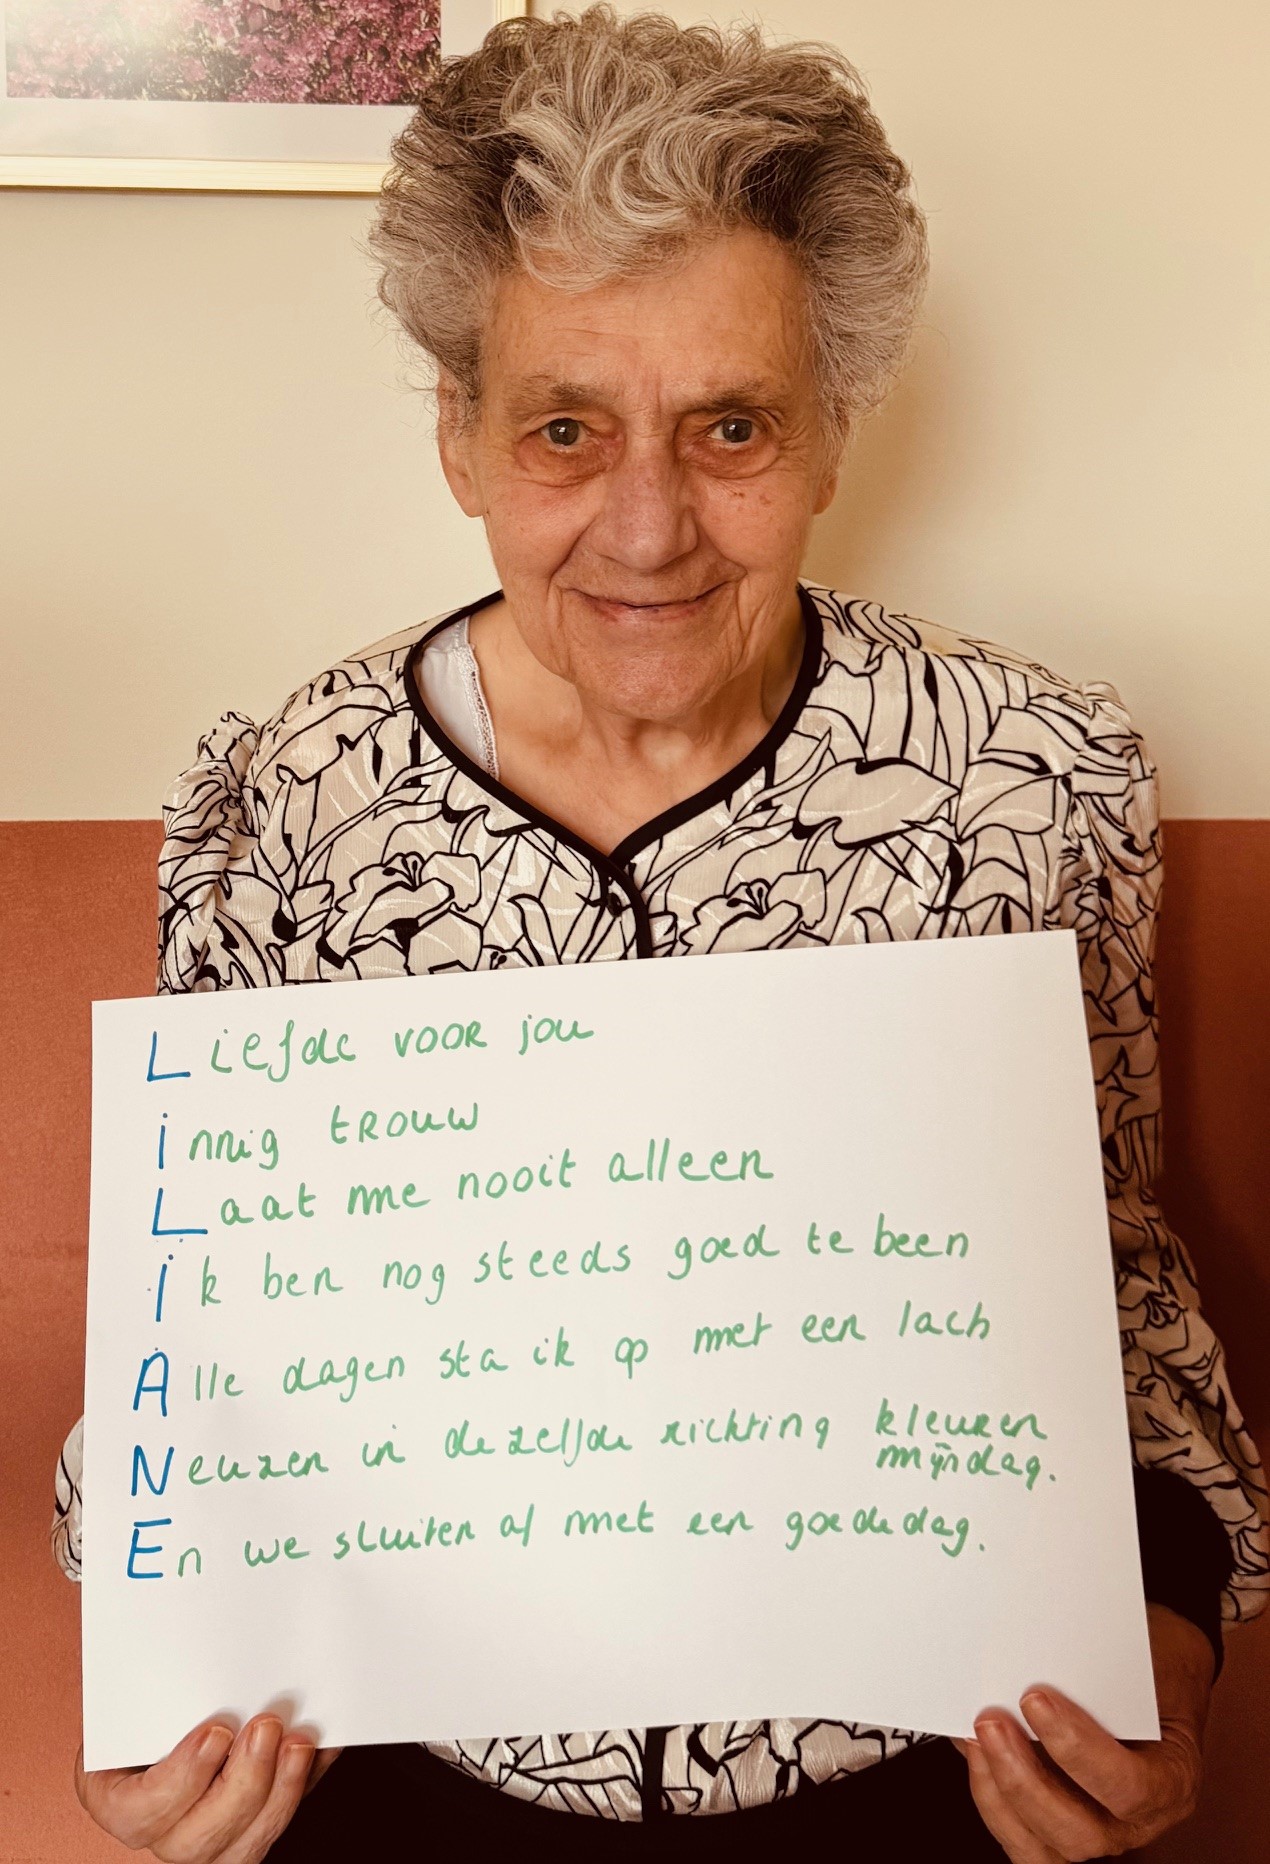 Liefde voor jou
innig trouw
Laat me nooit alleen
ik ben nog steeds goed te been
Alle dagen sta ik op met een lach
Neuzen in dezelfde richting kleuren
mijn dag.
En we sluiten af met een goede dag.